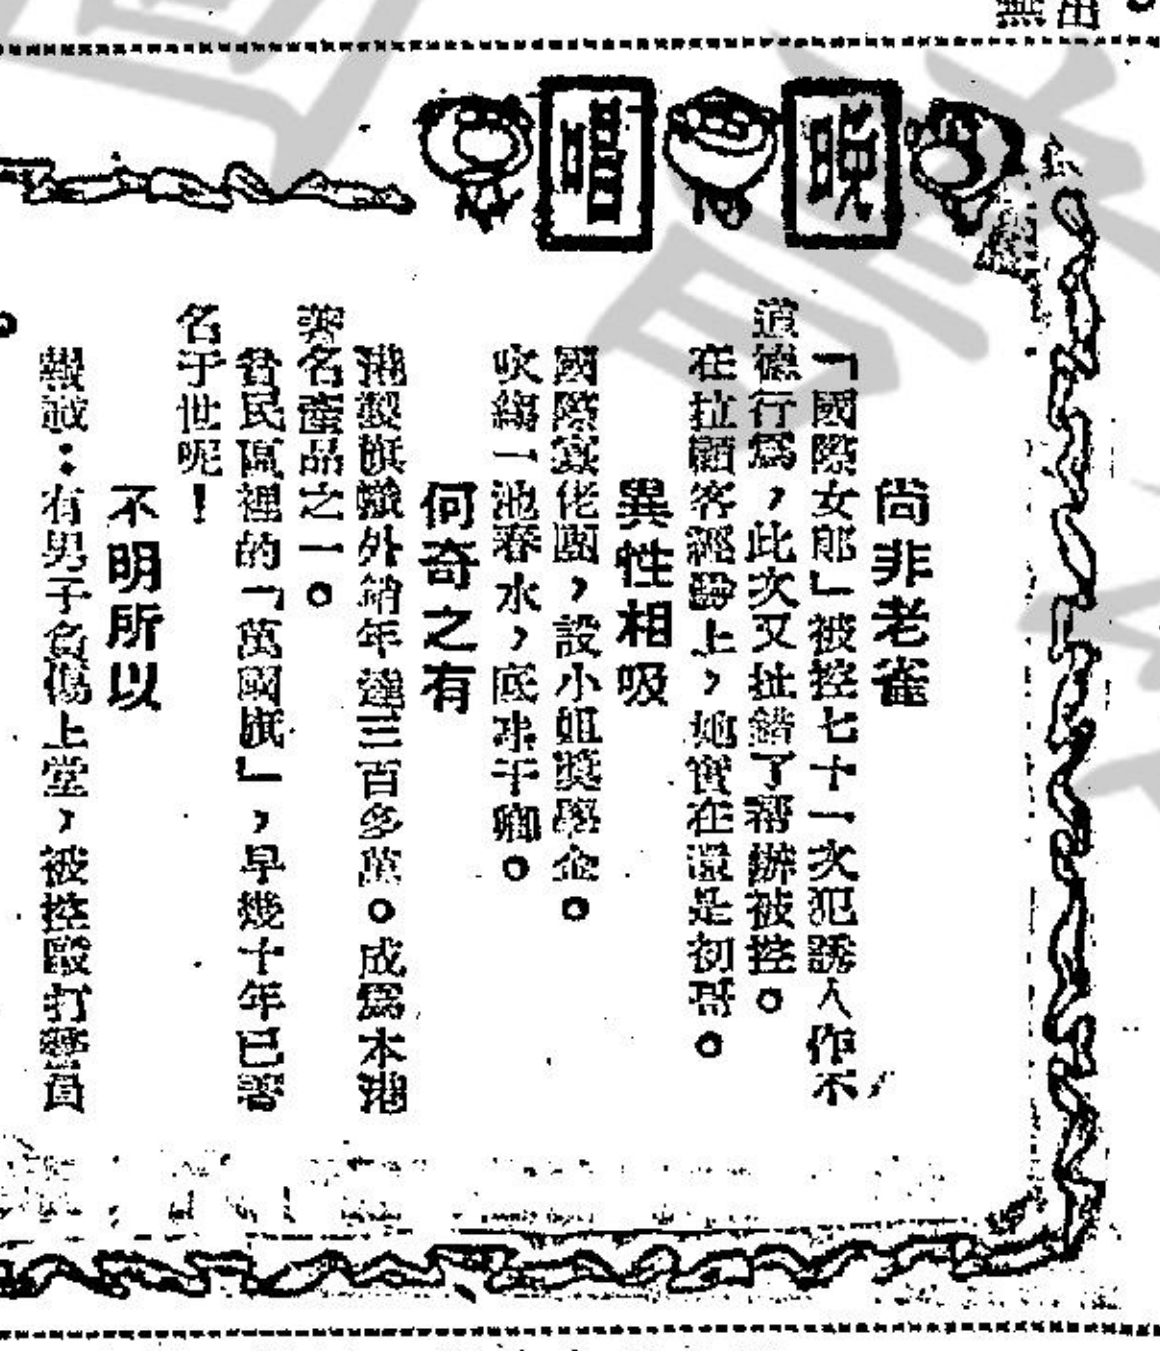 晚
尚非老雀
「國際女郎」被控七十一次犯誘人作不
道德行爲，此次又扯錯了幫辦被控。
在拉顧客經驗上，她實在還是初哥。
異性相吸
國際寡佬團，設小姐獎學金。
吹縐一池春水，底事干卿。
何奇之有
港製旗幟外銷年達三百多萬。成爲本港
著名產品之一。
貧民區裡的「萬國旗」，早幾十年已著
名于世呢！
不明所以
報載：有男子負傷上堂，被控毆打警員